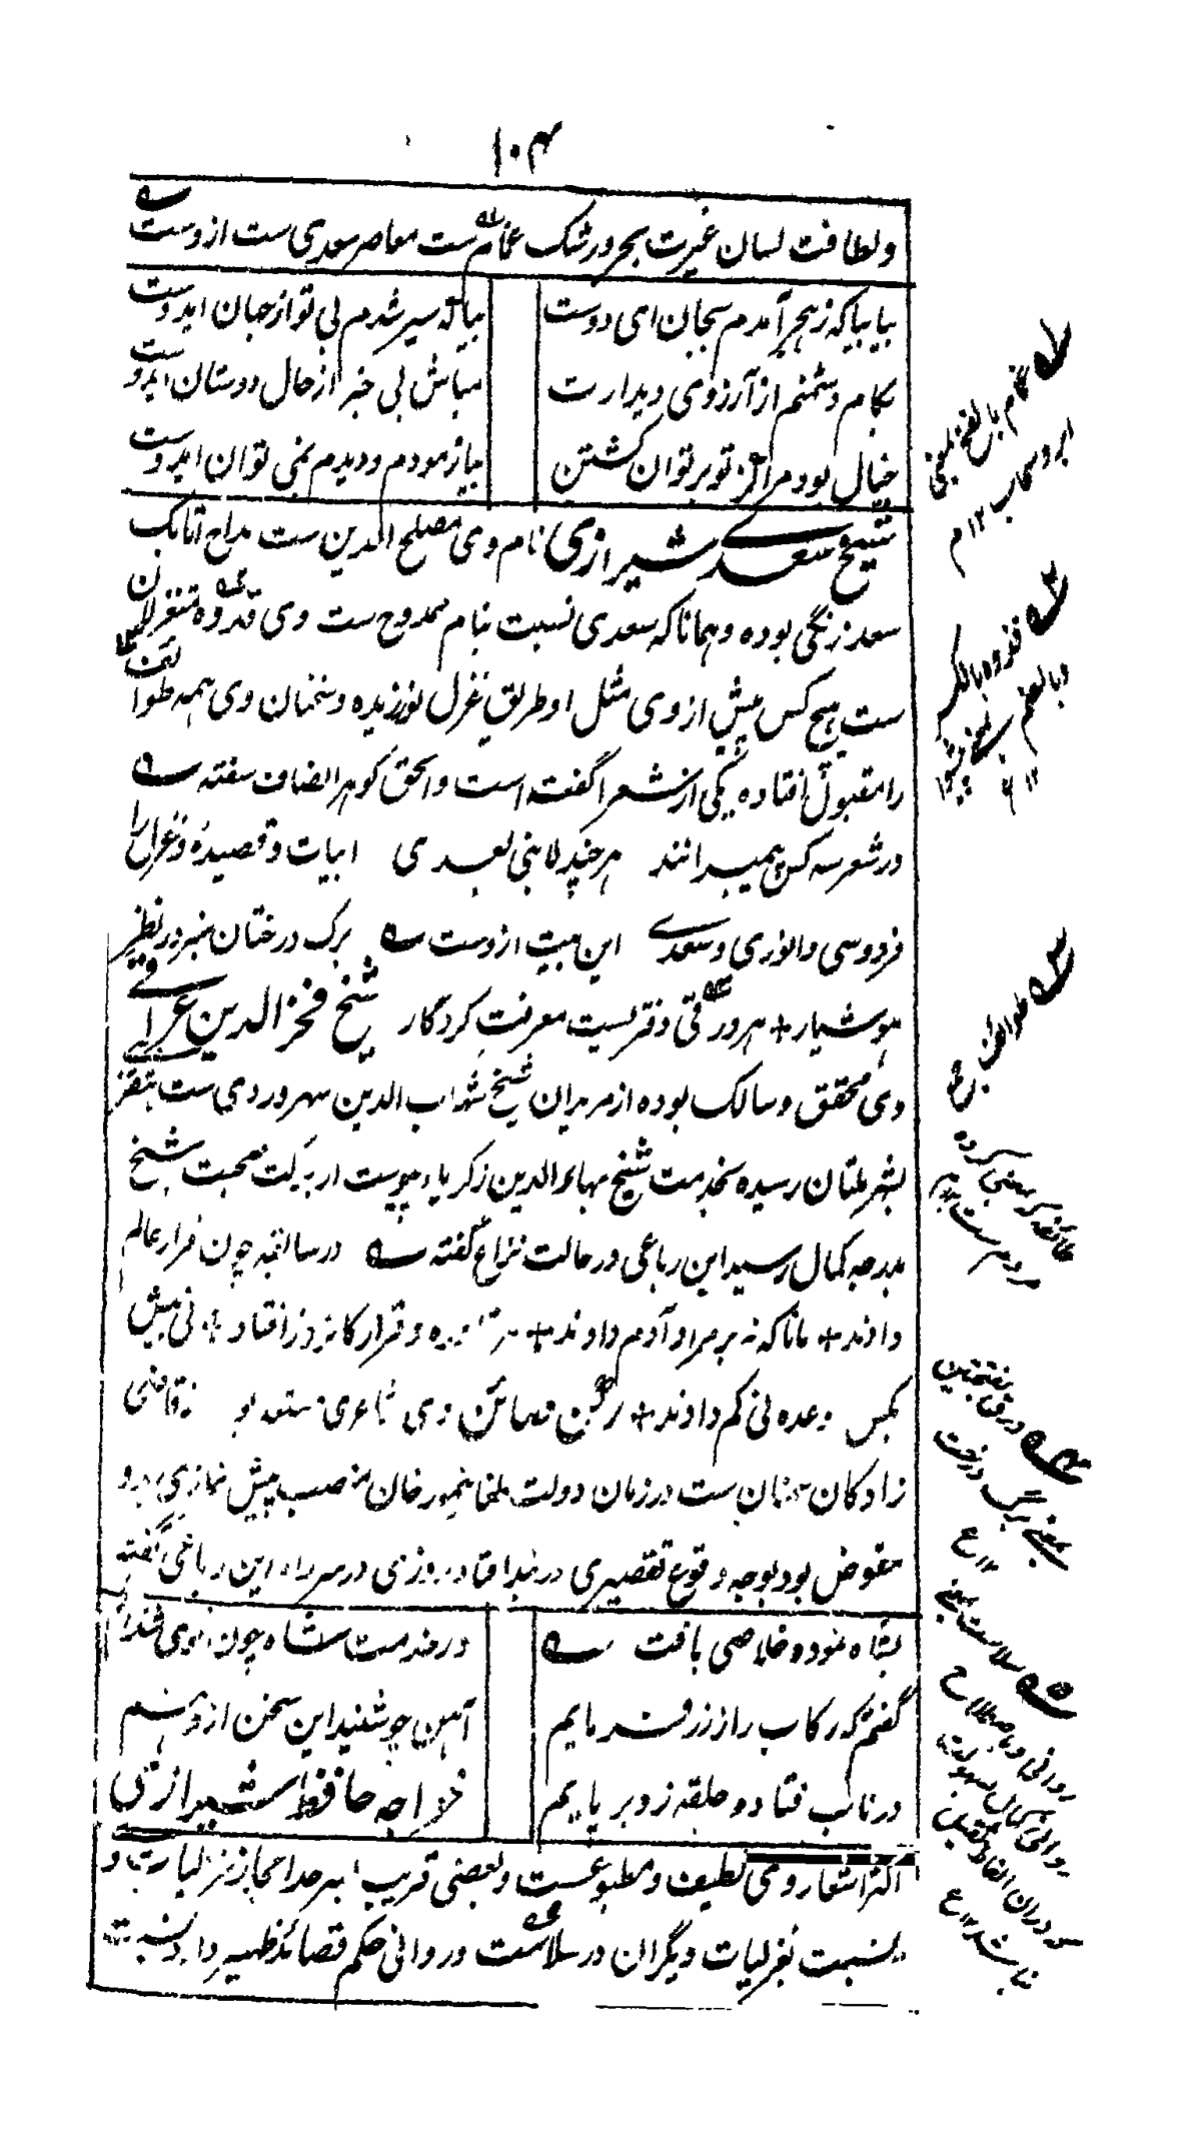 ۱۰۴
ولطافت لسان غیرت بحر ورشک غمام ست معاصر سعدی ست ازوست
بیا بیا که زهجر آمدم بجان ای دوست
بیا که سیر شدم بی تو از جهان ایدوست
بکام دشمنم از آرزوی دیدارت
مباش بی خبر از حال دوستان ایدوست
خیال بود مرا کز تو بر توان گشتن
بیازمودم و دیدم نمی توان ایدوست
شیخ سعدی شیرازی نام وی مصلح الدین ست مداح اتابک
سعد زنگی بوده و همانا که سعدی نسبت بنام ممدوح ست وی قدوه متغزلان
ست هیچ کس پیش از وی مثل او طریق غزل نورزیده و سخنان وی همه طوائف
را مقبول افتاده یکی از شعرا گفته است والحق گوهر انصاف سفته
در شعر سه کس پیمبرانند هر چند لا نبی بعدی ابیات و قصیده و غزل را
فردوسی و انوری و سعدی این بیت ازوست برک درختان سبز در نظر
هوشیار + هر ورقی دفتریست معرفت کردگار شیخ فخر الدین عراقی
وی محقق و سالک بوده از مریدان شیخ شهاب الدین سهروردی ست
بشهر ملتان رسیده بخدمت شیخ بهاء الدین زکریا پیوست از برکت صحبت شیخ
بدرجه کمال رسید این رباعی در حالت نزاع گفته در سابقه چون قرار عالم
دادند + مانا که نه بر مراد آدم دادند + قرار کانروز افتاد نی بیش
بکس وعده نی کم دادند + رکن صائن وی شاعری مستعد بود قاضی
زادگان سمنان ست در زمان دولت طغا تیمور خان منصب پیش نمازی بدو
مفوض بود بوجه وقوع تقصیری در بند افتاد روزی در سر راه این رباعی گفته
بشاه نمود و خلاصی یافت
در خدمت شاه چون قوی شد
گفتم که رکاب را ز زر فرمایم
آهن چو شنید این سخن از وهنم
در تاب فتاد و حلقه زد بر پایم
خواجه حافظ شیرازی
اکثر اشعار وی لطیف و مطبوعست و بعضی قریب بسرحد اعجاز غزلیات
بنسبت غزلیات دیگران در سلاست و روانی حکم قصائد ظهیر دارد نسبت
غمام بالفتح بمعنی
ابر و سحاب ۱۲ م
قدوه بالکسر
وبالضم
طوائف جمع
طائفه که بمعنی گروه
مردم ست
ورق بفتحتین
بمعنی برگ درخت
۱۲ ع
سلاست بمعنی
روانی